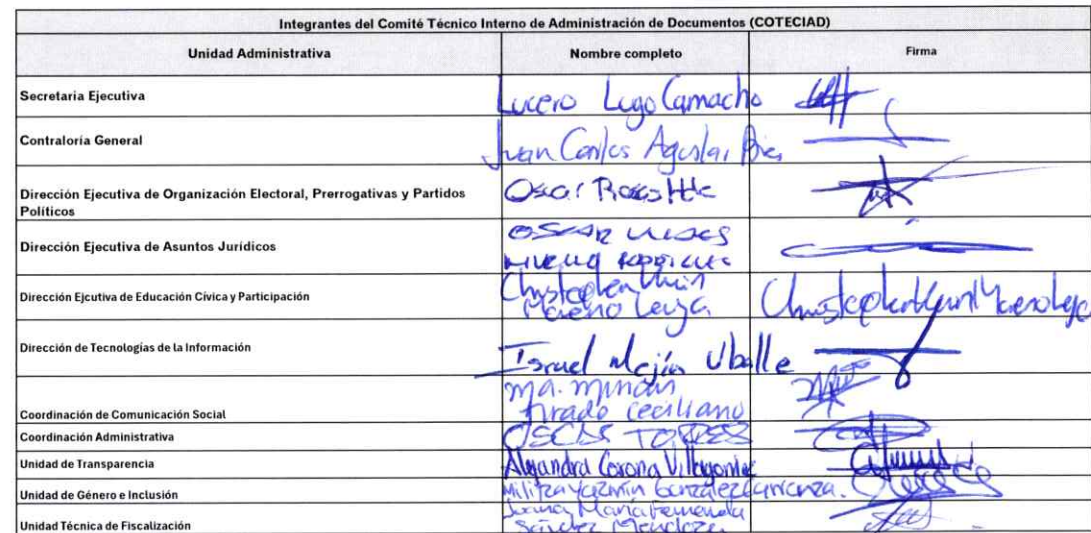 Integrantes del Comité Técnico Interno de Administración de Documentos (COTECIAD)
Unidad Administrativa Nombre completo Firma
Secretaria Ejecutiva Lucero Lugo Camacho
Contraloría General Juan Carlos Aguilar
Dirección Ejecutiva de Organización Electoral, Prerrogativas y Partidos Políticos Oscar Rosas Hdz
Dirección Ejecutiva de Asuntos Jurídicos OSCAR
Dirección Ejcutiva de Educación Cívica y Participación
Moreno
Dirección de Tecnologías de la Información Israel Mejía Uballe
ma.
tirado ceciliano
Coordinación de Comunicación Social
Coordinación Administrativa OSCAR TORRES
Unidad de Transparencia Alejandra Corona
Unidad de Género e Inclusión Militza Yazmín González Carranza.
Juana María Fernanda
Unidad Técnica de Fiscalización Sánchez Mendoza